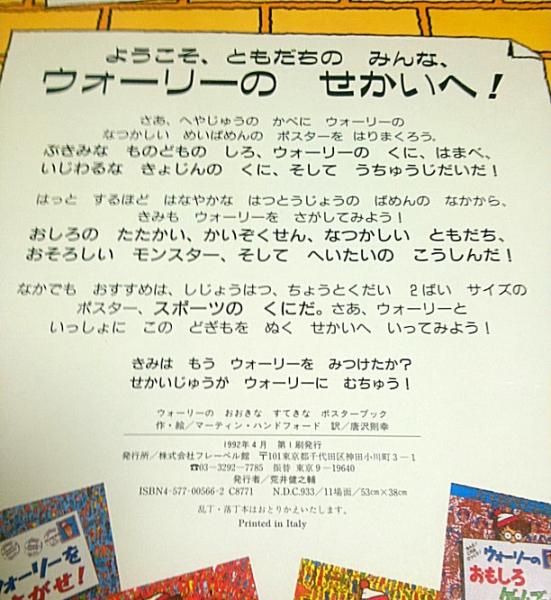 ようこそ、ともだちの みんな、
ウォーリーの せかいへ！
さあ、へやじゅうの かべに ウォーリーの
なつかしい めいばめんの ポスターを はりまくろう。
ぶきみな ものどもの しろ、ウォーリーの くに、はまべ、
いじわるな きょじんの くに、そして うちゅうじだいだ！
はっと するほど はなやかな はつとうじょうの ばめんの なかから、
きみも ウォーリーを さがしてみよう！
おしろの たたかい、かいぞくせん、なつかしい ともだち、
おそろしい モンスター、そして へいたいの こうしんだ！
なかでも おすすめは、しじょうはつ、ちょうとくだい 2ばい サイズの
ポスター、スポーツの くにだ。さあ、ウォーリーと
いっしょに この どぎもを ぬく せかいへ いってみよう！
きみは もう ウォーリーを みつけたか？
せかいじゅうが ウォーリーに むちゅう！
ウォーリーの おおきな すてきな ポスターブック
作・絵／マーティン・ハンドフォード 訳／唐沢則幸
1992年4月 第1刷発行
発行所／株式会社フレーベル館 〒101東京都千代田区神田小川町3－1
☎03－3292－7785 振替 東京9－19640
発行者／荒井健之輔
ISBN4-577-00566-2 C8771 N.D.C.933／11場面／53cm×38cm
乱丁・落丁本はおとりかえいたします。
Printed in Italy
ウォーリーを
さがせ！
ウォーリーの
おもしろ
ゲームブ